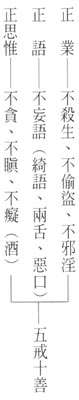 正業 不殺生、不偷盜、不邪淫
正語 不妄語（綺語、兩舌、惡口）
正思惟 不貪、不瞋、不癡（酒）
五戒十善